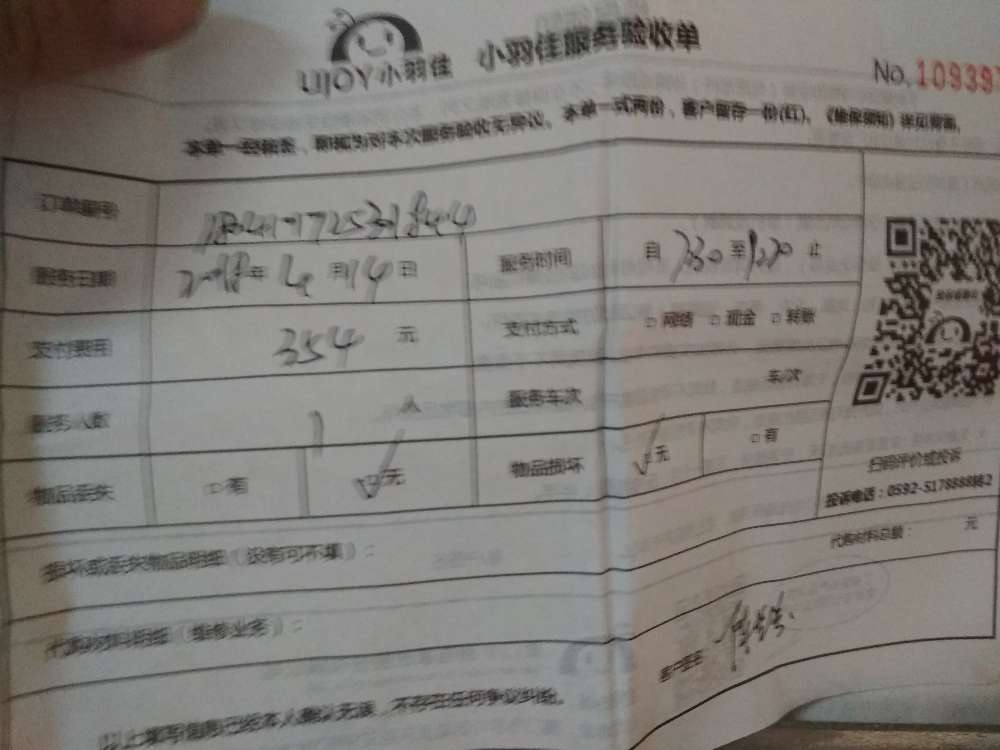 UJOY小羽佳 小羽佳服务验收单
No. 109397
本单一经签名，即视为对本次服务验收无异议。本单一式两份，客户留存一份(红)，《维保须知》详见背面。
订单编号
服务日期 2018年4月14日 服务时间 自 至 止
支付费用 354 元 支付方式 □网络 □现金 □转账
服务人数 1 人 服务车次 车/次
物品丢失 □有 □无 物品损坏 □无 □有
扫码评价或投诉
投诉电话：0592-5178888转2
损坏或丢失物品明细（没有可不填）：
代购材料总额： 元
代购材料明细（维修业务）：
客户签名：
以上填写信息已经本人确认无误，不存在任何争议纠纷。